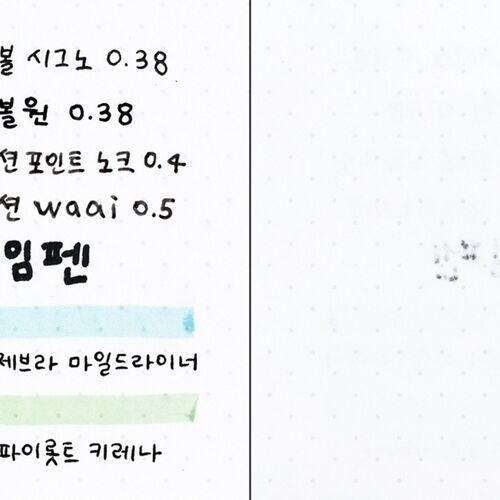 볼 시그노 0.38
볼 원 0.38
션 포인트 노크 0.4
션 waai 0.5
임펜
제브라 마일드라이너
파이롯트 키레나